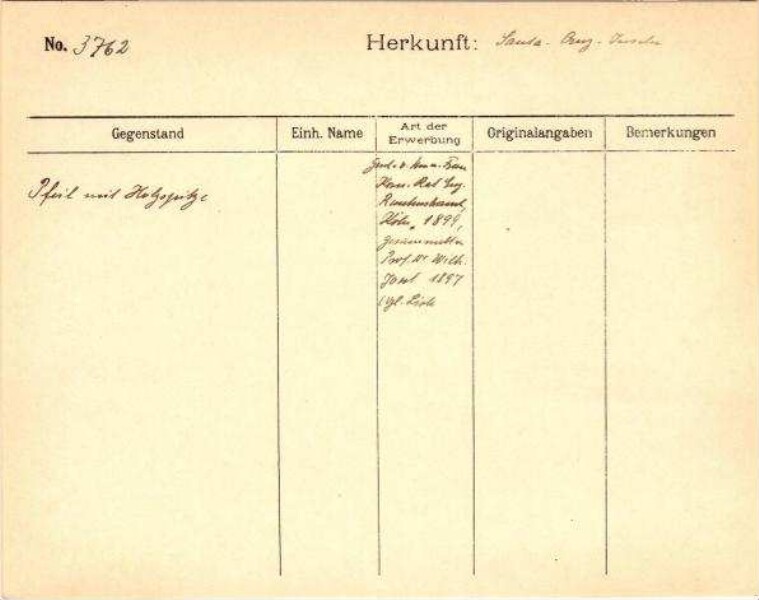 No. 3762 Herkunft: Santa-Cruz-Inseln
Gegenstand Einh. Name Art der Erwerbung Originalangaben Bemerkungen
Pfeil mit Holzspitze
Gesch. v. Frau
Kom. Rat Eug.
Rautenstrauch,
Köln, 1899,
gesammelt
Prof. Dr. Wilh.
Joest 1897
(vgl. Liste